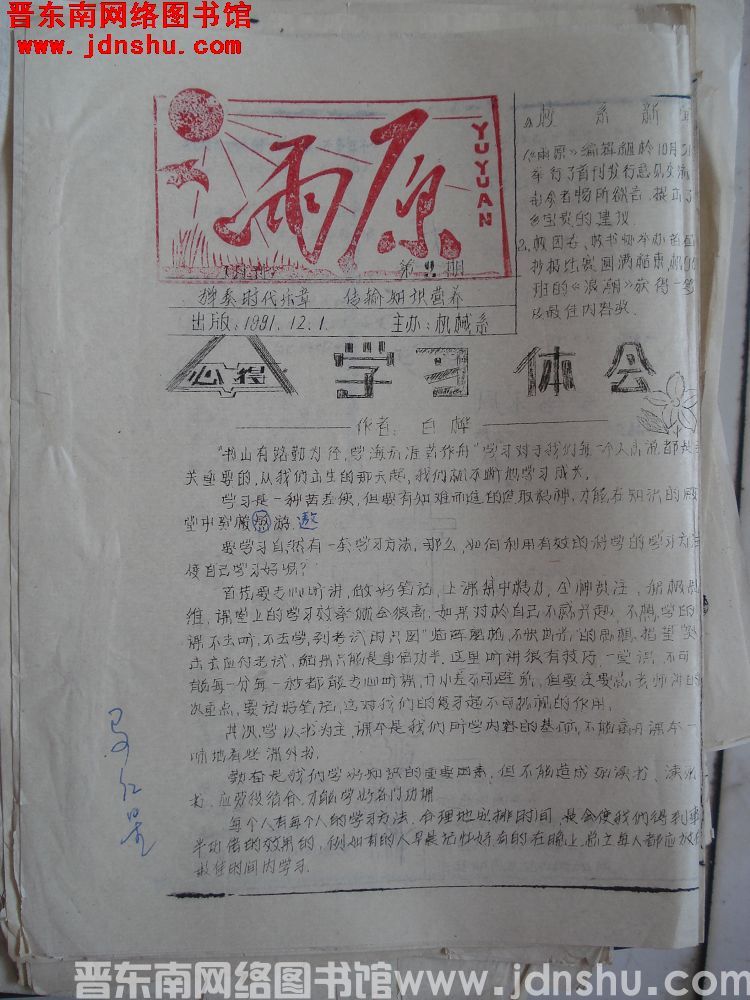 晋东南网络图书馆
www.jdnshu.com
雨原
YUYUAN
第 期
弹奏时代乐章 传输知识营养
出版:1991.12.1. 主办:机械系
校系新
1.《雨原》编辑组於10月
举行了首刊发行意见交流
与会者畅所欲言.提出了
多宝贵的建议.
抄报比赛圆满结束,机
班的《浪潮》获得一
及最佳内容奖.
心得 学习体会
作者:白桦
"书山有路勤为径,学海无涯苦作舟"学习对于我们每一个人来说都是
关重要的,从我们出生的那天起,我们就不断地学习成长.
学习是一种苦差使,但要有知难而进的进取精神,才能在知识的殿
堂中 游遨
要学习自然有一套学习方法.那么,如何利用有效的科学的学习方法
使自己学习好呢?
首先要专心听讲,做好笔记,上课集中精力,全神贯注,积极思
维,课堂上的学习效率就会很高.如果对於自己不感兴趣,不想学的
课不去听,不去学,到考试时只图"临阵磨枪,不快也光"的思想.指望突
击去应付考试,结果只能是事倍功半.这里听讲很有技巧,一堂课,不可
能每一分每一秒都能专心听课,开小差不可避免,但要注要点,老师讲的
次重点,要记好笔记,这对我们的复习起不可抵视的作用.
其次,学以书为主,课本是我们所学内容的基础,不能离开课本一
味地看些课外书.
勤奋是我们学好知识的重要因素,但不能造成死读书、读死
书.应劳役结合,才能学好各门功课
每个人有每个人的学习方法.合理地安排时间,是会使我们得到事
半功倍的效果的,例如有的人早晨记性好,有的在晚上,总之每人都应放在
最佳时间内学习.
晋东南网络图书馆www.jdnshu.com